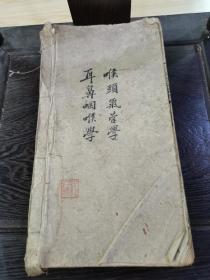 喉頭氣管學
耳鼻咽喉學